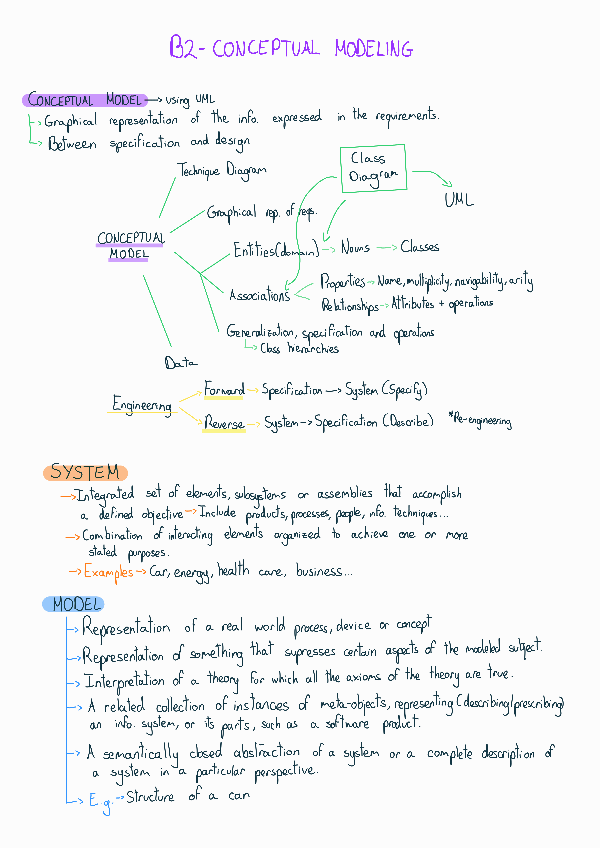 B2- CONCEPTUAL MODELING
CONCEPTUAL MODEL → using UML
→ Graphical representation of the info. expressed in the requirements.
→ Between specification and design
Technique Diagram
Class
Diagram
UML
Graphical rep. of reqs.
CONCEPTUAL
MODEL
Entities (domain) → Nouns → Classes
Associations
Properties → Name, multiplicity, navigability, arity
Relationships → Attributes + operations
Generalization, specification and operations
→ Class hierarchies
Data
Engineering
Forward → Specification → System (Specify)
Reverse → System → Specification (Describe) *Re-engineering
SYSTEM
→ Integrated set of elements, subsystems or assemblies that accomplish
a defined objective → Include products, processes, people, info. techniques...
→ Combination of interacting elements organized to achieve one or more
stated purposes.
→ Examples → Car, energy, health care, business...
MODEL
→ Representation of a real world process, device or concept
→ Representation of something that supresses certain aspects of the modeled subject.
→ Interpretation of a theory for which all the axioms of the theory are true.
→ A related collection of instances of meta-objects, representing (describing/prescribing)
an info. system, or its parts, such as a software product.
→ A semantically closed abstraction of a system or a complete description of
a system in a particular perspective.
→ E.g. → Structure of a car